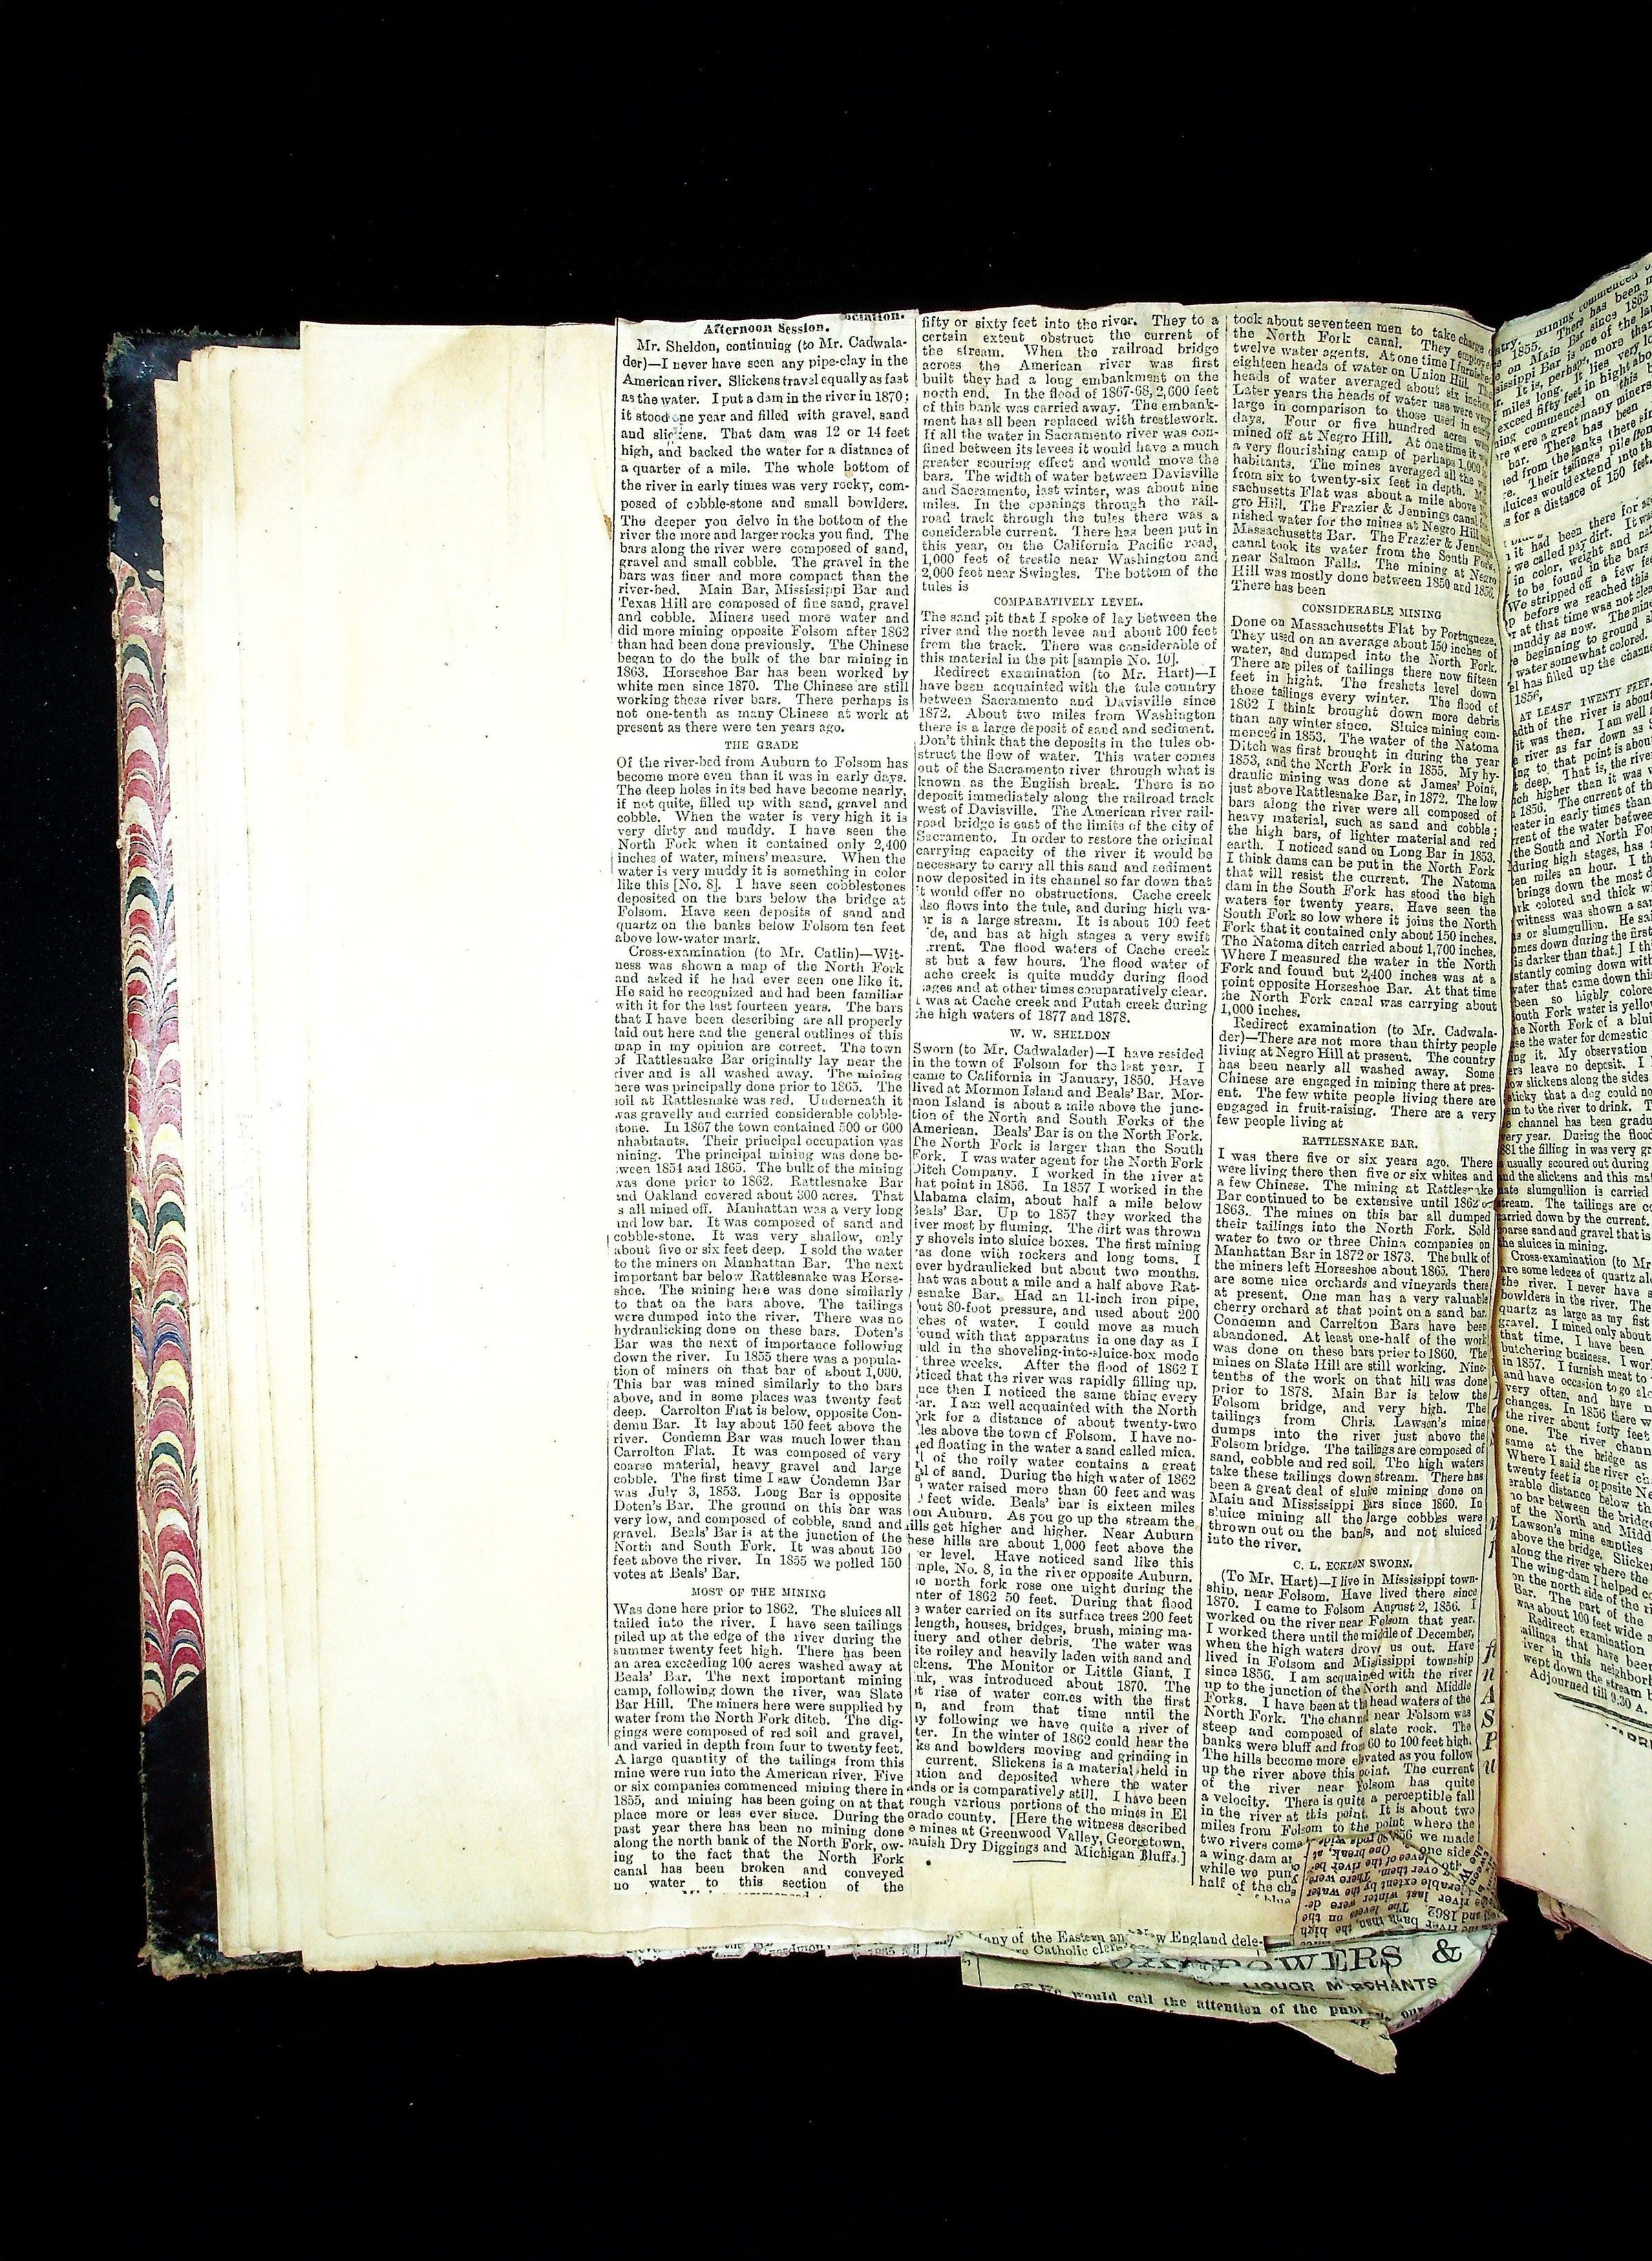 Afternoon Session.
Mr. Sheldon, continuing (to Mr. Cadwala-
der)—I never have seen any pipe-clay in the
American river. Slickens travel equally as fast
as the water. I put a dam in the river in 1870;
it stood one year and filled with gravel, sand
and That dam was 12 or 14 feet
high, and backed the water for a distance of
a quarter of a mile. The whole bottom of
the river in early times was very rocky, com-
posed of cobble-stone and small bowlders.
The deeper you delve in the bottom of the
river the more and larger rocks you find. The
bars along the river were composed of sand,
gravel and small cobble. The gravel in the
bars was finer and more compact than the
river-bed. Main Bar, Mississippi Bar and
Texas Hill are composed of fine sand, gravel
and cobble. Miners used more water and
did more mining opposite Folsom after 1862
than had been done previously. The Chinese
began to do the bulk of the bar mining in
1863. Horseshoe Bar has been worked by
white men since 1870. The Chinese are still
working these river bars. There perhaps is
not one-tenth as many Chinese at work at
present as there were ten years ago.
THE GRADE
Of the river-bed from Auburn to Folsom has
become more even than it was in early days.
The deep holes in its bed have become nearly,
if not quite, filled up with sand, gravel and
cobble. When the water is very high it is
very dirty and muddy. I have seen the
North Fork when it contained only 2,400
inches of water, miners' measure. When the
water is very muddy it is something in color
like this [No. 8]. I have seen cobblestones
deposited on the bars below the bridge at
Folsom. Have seen deposits of sand and
quartz on the banks below Folsom ten feet
above low-water mark.
Cross-examination (to Mr. Catlin)—Wit-
ness was shown a map of the North Fork
and asked if he had ever seen one like it.
He said he recognized and had been familiar
with it for the last fourteen years. The bars
that I have been describing are all properly
laid out here and the general outlines of this
map in my opinion are correct. The town
of Rattlesnake Bar originally lay near the
river and is all washed away. The mining
here was principally done prior to 1865. The
soil at Rattlesnake was red. Underneath it
was gravelly and carried considerable cobble-
stone. In 1867 the town contained 500 or 600
nhabitants. Their principal occupation was
mining. The principal mining was done be-
tween 1851 and 1865. The bulk of the mining
was done prior to 1862. Rattlesnake Bar
and Oakland covered about 300 acres. That
s all mined off. Manhattan was a very long
and low bar. It was composed of sand and
cobble-stone. It was very shallow, only
about five or six feet deep. I sold the water
to the miners on Manhattan Bar. The next
important bar below Rattlesnake was Horse-
shoe. The mining here was done similarly
to that on the bars above. The tailings
were dumped into the river. There was no
hydraulicking done on these bars. Doten's
Bar was the next of importance following
down the river. In 1855 there was a popula-
tion of miners on that bar of about 1,000.
This bar was mined similarly to the bars
above, and in some places was twenty feet
deep. Carrolton Flat is below, opposite Con-
demn Bar. It lay about 150 feet above the
river. Condemn Bar was much lower than
Carrolton Flat. It was composed of very
coarse material, heavy gravel and large
cobble. The first time I saw Condemn Bar
was July 3, 1853. Long Bar is opposite
Doten's Bar. The ground on this bar was
very low, and composed of cobble, sand and
gravel. Beals' Bar is at the junction of the
North and South Fork. It was about 150
feet above the river. In 1855 we polled 150
votes at Beals' Bar.
MOST OF THE MINING
Was done here prior to 1862. The sluices all
tailed into the river. I have seen tailings
piled up at the edge of the river during the
summer twenty feet high. There has been
an area exceeding 100 acres washed away at
Beals' Bar. The next important mining
camp, following down the river, was Slate
Bar Hill. The miners here were supplied by
water from the North Fork ditch. The dig-
gings were composed of red soil and gravel,
and varied in depth from four to twenty feet.
A large quantity of the tailings from this
mine were run into the American river. Five
or six companies commenced mining there in
1855, and mining has been going on at that
place more or less ever since. During the
past year there has been no mining done
along the north bank of the North Fork, ow-
ing to the fact that the North Fork
canal has been broken and conveyed
no water to this section of the
fifty or sixty feet into the river. They to a
certain extent obstruct the current of
the stream. When the railroad bridge
across the American river was first
built they had a long embankment on the
north end. In the flood of 1867-68, 2,600 feet
of this bank was carried away. The embank-
ment has all been replaced with trestlework.
If all the water in Sacramento river was con-
fined between its levees it would have a much
greater scouring effect and would move the
bars. The width of water between Davisville
and Sacramento, last winter, was about nine
miles. In the openings through the rail-
road track through the tules there was a
considerable current. There has been put in
this year, on the California Pacific road,
1,000 feet of trestle near Washington and
2,000 feet near Swingles. The bottom of the
tules is
COMPARATIVELY LEVEL.
The sand pit that I spoke of lay between the
river and the north levee and about 100 feet
from the track. There was considerable of
this material in the pit [sample No. 10].
Redirect examination (to Mr. Hart)—I
have been acquainted with the tule country
between Sacramento and Davisville since
1872. About two miles from Washington
there is a large deposit of sand and sediment.
Don't think that the deposits in the tules ob-
struct the flow of water. This water comes
out of the Sacramento river through what is
known as the English break. There is no
deposit immediately along the railroad track
west of Davisville. The American river rail-
road bridge is east of the limits of the city of
Sacramento. In order to restore the original
carrying capacity of the river it would be
necessary to carry all this sand and sediment
now deposited in its channel so far down that
't would offer no obstructions. Cache creek
lso flows into the tule, and during high wa-
er is a large stream. It is about 100 feet
de, and has at high stages a very swift
rrent. The flood waters of Cache creek
st but a few hours. The flood water of
ache creek is quite muddy during flood
ages and at other times comparatively clear.
I was at Cache creek and Putah creek during
the high waters of 1877 and 1878.
W. W. SHELDON
Sworn (to Mr. Cadwalader)—I have resided
in the town of Folsom for the last year. I
came to California in January, 1850. Have
lived at Mormon Island and Beals' Bar. Mor-
mon Island is about a mile above the junc-
tion of the North and South Forks of the
American. Beals' Bar is on the North Fork.
The North Fork is larger than the South
Fork. I was water agent for the North Fork
Ditch Company. I worked in the river at
hat point in 1856. In 1857 I worked in the
Alabama claim, about half a mile below
Beals' Bar. Up to 1857 they worked the
iver most by fluming. The dirt was thrown
y shovels into sluice boxes. The first mining
as done with rockers and long toms. I
ever hydraulicked but about two months.
hat was about a mile and a half above Rat-
esnake Bar. Had an 11-inch iron pipe,
out 80-foot pressure, and used about 200
ches of water. I could move as much
ound with that apparatus in one day as I
uld in the shoveling-into-sluice-box mode
three weeks. After the flood of 1862 I
ticed that the river was rapidly filling up.
nce then I noticed the same thing every
ar. I am well acquainted with the North
ork for a distance of about twenty-two
les above the town of Folsom. I have no-
ed floating in the water a sand called mica.
l of the roily water contains a great
al of sand. During the high water of 1862
water raised more than 60 feet and was
feet wide. Beals' bar is sixteen miles
om Auburn. As you go up the stream the
ills get higher and higher. Near Auburn
hese hills are about 1,000 feet above the
er level. Have noticed sand like this
mple, No. 8, in the river opposite Auburn.
o north fork rose one night during the
nter of 1862 50 feet. During that flood
e water carried on its surface trees 200 feet
length, houses, bridges, brush, mining ma-
inery and other debris. The water was
ite roiley and heavily laden with sand and
ckens. The Monitor or Little Giant, I
nk, was introduced about 1870. The
st rise of water comes with the first
n, and from that time until the
y following we have quite a river of
ter. In the winter of 1862 could hear the
ks and bowlders moving and grinding in
current. Slickens is a material held in
ition and deposited where the water
ands or is comparatively still. I have been
rough various portions of the mines in El
orado county. [Here the witness described
e mines at Greenwood Valley, Georgetown,
anish Dry Diggings and Michigan Bluffs.]
took about seventeen men to take charge
the North Fork canal. They employed
twelve water agents. At one time I furnished
eighteen heads of water on Union Hill. The
heads of water averaged about six inches.
Later years the heads of water use were very
large in comparison to those used in early
days. Four or five hundred acres was
mined off at Negro Hill. At one time it was
a very flourishing camp of perhaps 1,000
habitants. The mines averaged all the way
from six to twenty-six feet in depth. Ma
sachusetts Flat was about a mile above
gro Hill. The Frazier & Jennings canal
nished water for the mines at Negro Hill
Massachusetts Bar. The Frazier & Jennings
canal took its water from the South Fork,
near Salmon Falls. The mining at Negro
Hill was mostly done between 1850 and 1856.
There has been
CONSIDERABLE MINING
Done on Massachusetts Flat by Portuguese.
They used on an average about 150 inches of
water, and dumped into the North Fork.
There are piles of tailings there now fifteen
feet in hight. The freshets level down
those tailings every winter. The flood of
1862 I think brought down more debris
than any winter since. Sluice mining com-
menced in 1853. The water of the Natoma
Ditch was first brought in during the year
1853, and the North Fork in 1855. My hy-
draulic mining was done at James' Point,
just above Rattlesnake Bar, in 1872. The low
bars along the river were all composed of
heavy material, such as sand and cobble;
the high bars, of lighter material and red
earth. I noticed sand on Long Bar in 1853.
I think dams can be put in the North Fork
that will resist the current. The Natoma
dam in the South Fork has stood the high
waters for twenty years. Have seen the
South Fork so low where it joins the North
Fork that it contained only about 150 inches.
The Natoma ditch carried about 1,700 inches.
Where I measured the water in the North
Fork and found but 2,400 inches was at a
point opposite Horseshoe Bar. At that time
the North Fork canal was carrying about
1,000 inches.
Redirect examination (to Mr. Cadwala-
der)—There are not more than thirty people
living at Negro Hill at present. The country
has been nearly all washed away. Some
Chinese are engaged in mining there at pres-
ent. The few white people living there are
engaged in fruit-raising. There are a very
few people living at
RATTLESNAKE BAR.
I was there five or six years ago. There
were living there then five or six whites and
a few Chinese. The mining at Rattlesnake
Bar continued to be extensive until 1862 or
1863. The mines on this bar all dumped
their tailings into the North Fork. Sold
water to two or three China companies on
Manhattan Bar in 1872 or 1873. The bulk of
the miners left Horseshoe about 1865. There
are some nice orchards and vineyards there
at present. One man has a very valuable
cherry orchard at that point on a sand bar.
Condemn and Carrelton Bars have been
abandoned. At least one-half of the work
was done on these bars prior to 1860. The
mines on Slate Hill are still working. Nine-
tenths of the work on that hill was done
prior to 1878. Main Bar is below the
Folsom bridge, and very high. The
tailings from Chris. Lawson's mine
dumps into the river just above the
Folsom bridge. The tailings are composed of
sand, cobble and red soil. The high waters
take these tailings down stream. There has
been a great deal of sluice mining done on
Main and Mississippi Bars since 1860. In
sluice mining all the large cobbles were
thrown out on the banks, and not sluiced
into the river.
C. L. ECKLON SWORN.
(To Mr. Hart)—I live in Mississippi town-
ship, near Folsom. Have lived there since
1870. I came to Folsom August 2, 1856. I
worked on the river near Folsom that year.
I worked there until the middle of December,
when the high waters drove us out. Have
lived in Folsom and Mississippi township
since 1856. I am acquainted with the river
up to the junction of the North and Middle
Forks. I have been at the head waters of the
North Fork. The channel near Folsom was
steep and composed of slate rock. The
banks were bluff and from 60 to 100 feet high.
The hills become more elevated as you follow
up the river above this point. The current
of the river near Folsom has quite
a velocity. There is quite a perceptible fall
in the river at this point. It is about two
miles from Folsom to the point where the
two rivers come 1856 we made
a wing-dam one side
while we
half of the
any of the Eastern and New England dele-
Catholic
POWERS &
LIQUOR MERCHANTS
would call the attention of the
1855.
on Main
Mississippi Bar is one of the
It is, perhaps, more than
miles long. It lies very
exceed fifty feet in hight
ning commenced on this
were a great many miners
bar. There has been
from the banks there
Their tailings' pile
sluices would extend into the
for a distance of 150 feet
it had been there for
we called pay dirt. It was
in color, weight and
to be found in the bars
We stripped off a few feet
before we reached this
at that time was not
muddy as now. The
beginning to ground
water somewhat colored.
has filled up the channel
1856,
AT LEAST TWENTY FEET.
width of the river is about
it was then. I am well
river as far down as
to that point is about
deep. That is, the river
much higher than it was
1856. The current of the
greater in early times than
current of the water between
the South and North Fo
during high stages, has
ten miles an hour. I
brings down the most
dark colored and thick
witness was shown a
or slumgullion. He
comes down during the first
is darker than that.] I
constantly coming down with
water that came down this
been so highly colored
South Fork water is yellow
the North Fork of a
use the water for domestic
ing it. My observation
leave no deposit. I
slickens along the sides
sticky that a dog could
to the river to drink.
channel has been
every year. During the flood
1881 the filling in was very
usually scoured out during
and the slickens and this
slumgullion is carried
stream. The tailings are
carried down by the current.
coarse sand and gravel that is
the sluices in mining.
Cross-examination (to Mr
are some ledges of quartz
the river. I never have
bowlders in the river. The
quartz as large as my fist
gravel. I mined only about
that time. I have been
butchering business. I
in 1857. I furnish meat to
and have occasion to go
very often, and have
changes. In 1856 there
the river about forty feet
one. The river
same at the bridge as
Where I said the river
twenty feet is opposite
erable distance below the
no bar between the bridge
of the North and Midd
Lawson's mine empties
above the bridge.
along the river where the
The wing-dam I helped
on the north side of the
Bar. The part of the
was about 100 feet wide
Redirect examination
tailings that have been
river in this
swept down the stream
Adjourned till 9:30 A.